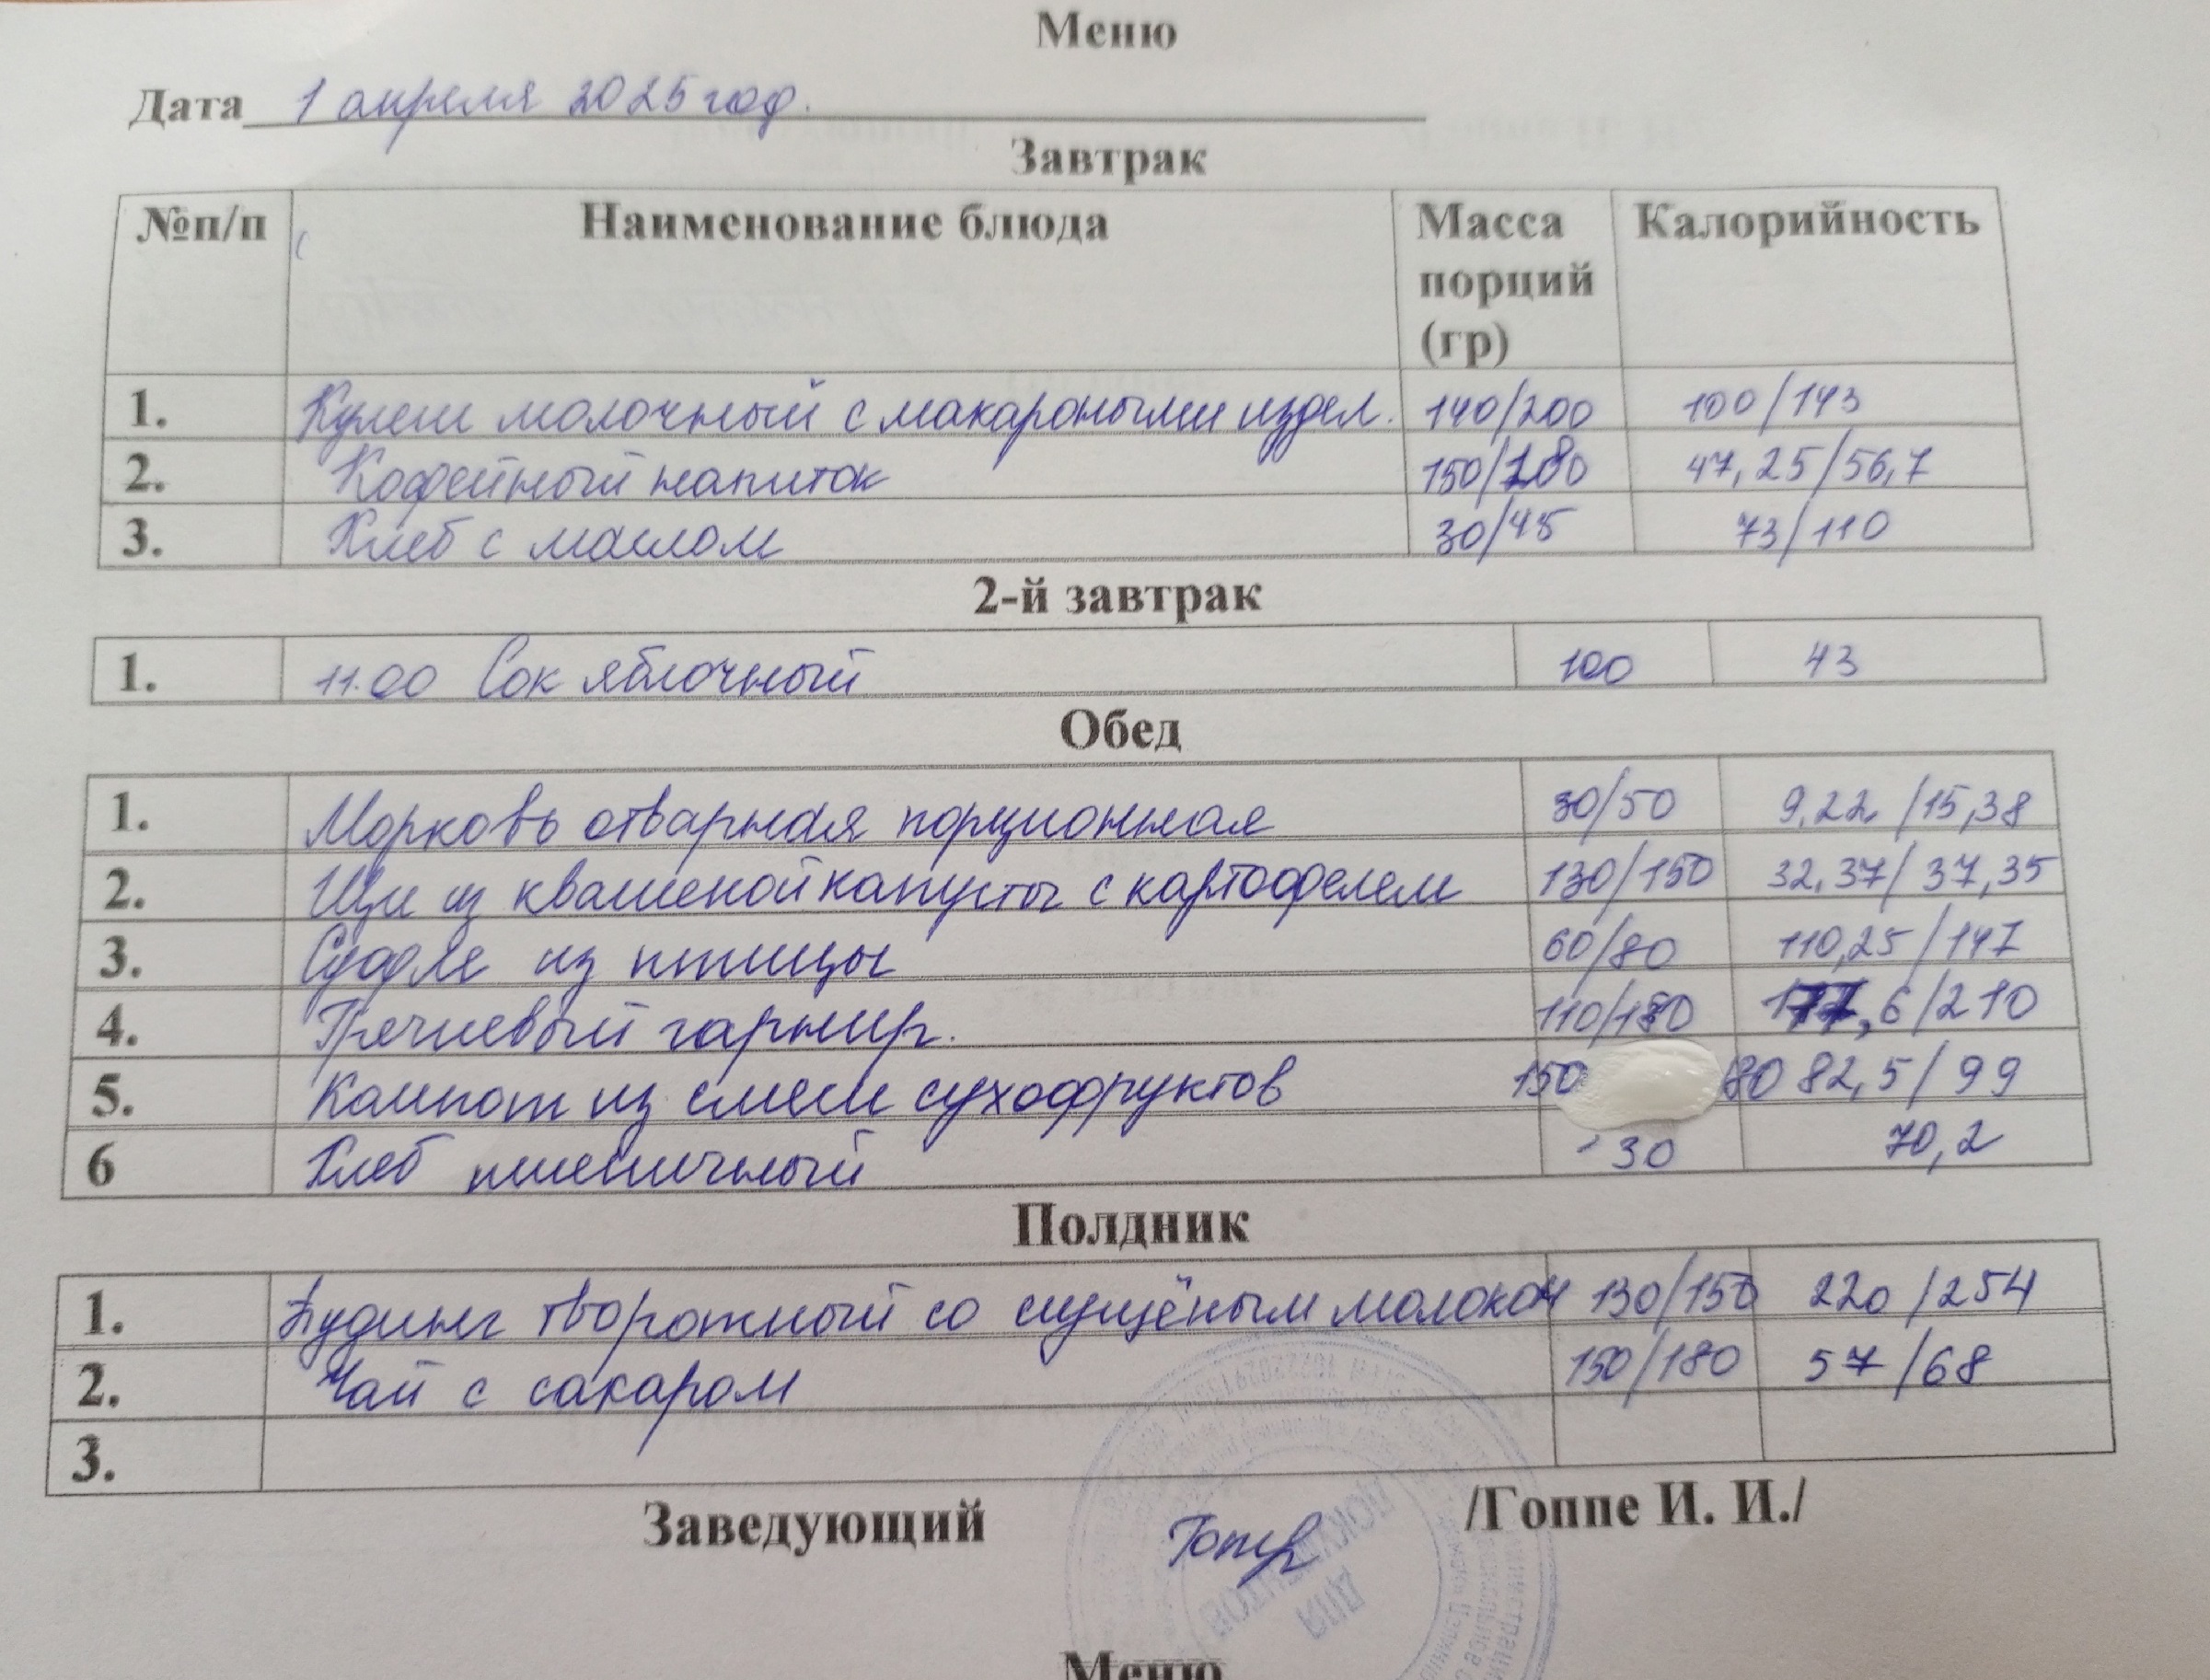 Меню
Дата 1 апреля 2025 год.
Завтрак
№п/п Наименование блюда Масса порций (гр) Калорийность
1. Кулеш молочный с макароными издел. 140/200 100/143
2. Кофейный напиток 150/180 47,25/56,7
3. Хлеб с маслом 30/45 73/110
2-й завтрак
1. 11.00 Сок яблочный 100 43
Обед
1. Морковь отварная порционная 30/50 9,22/15,38
2. Щи из квашеной капусты с картофелем 130/150 32,37/37,35
3. Суфле из птицы 60/80 110,25/147
4. Гречневый гарнир. 110/130 177,6/210
5. Компот из смеси сухофруктов 150 80 82,5/99
6 Хлеб пшеничный 30 70,2
Полдник
1. Пудинг творожный со сгущёным молоком 130/150 220/254
2. Чай с сахаром 150/180 57/68
3.
Заведующий /Гоппе И. И./
ДЛЯ
ДОКУМЕНТОВ
Меню